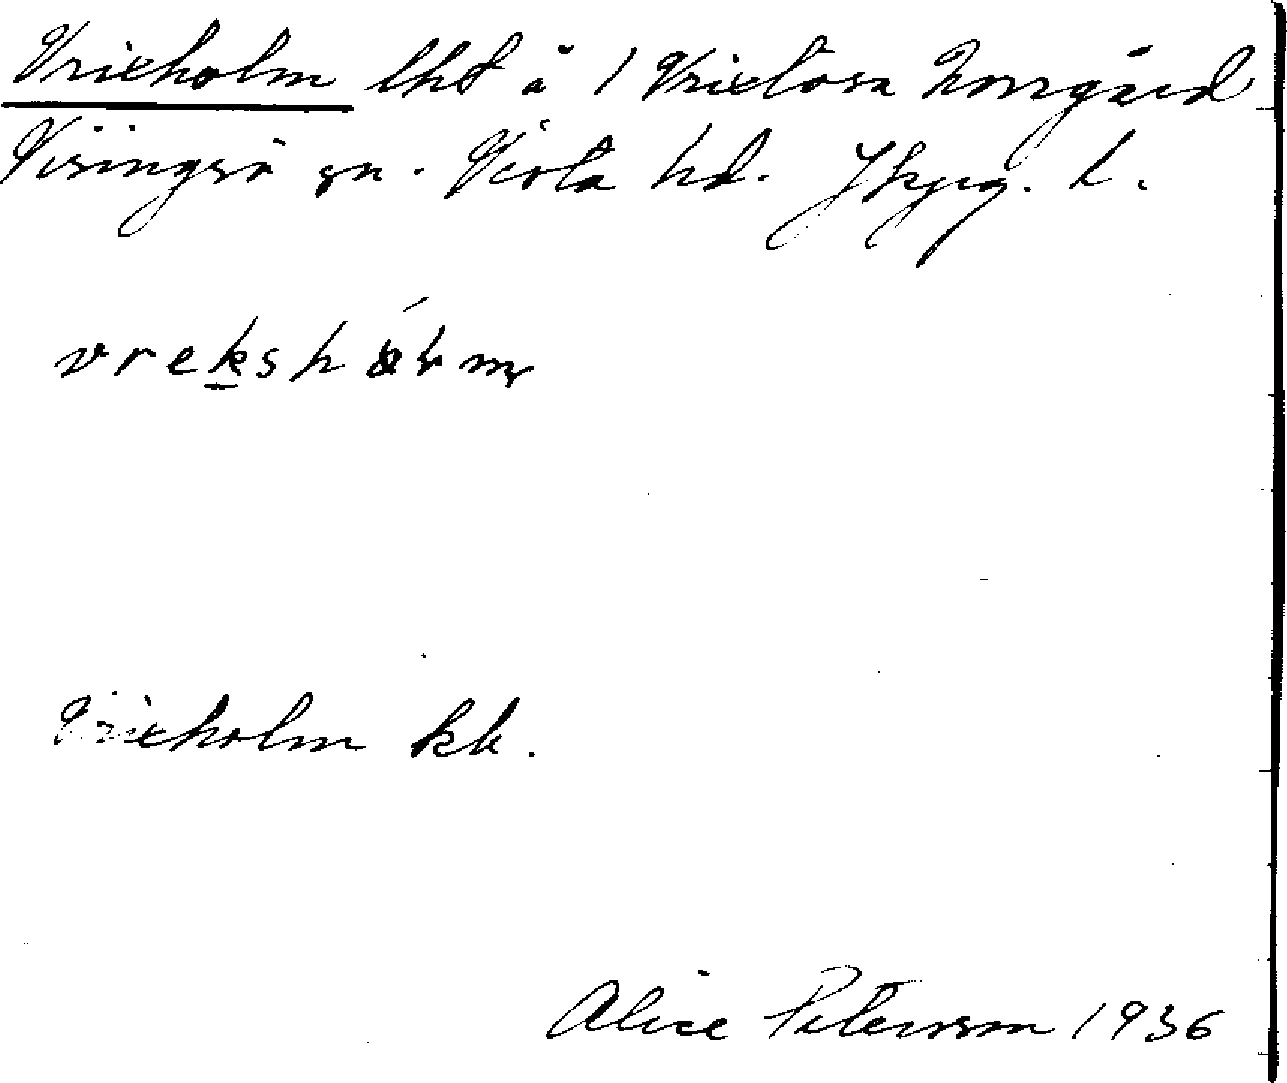 Vrixholm lht å 1 Vrixlösa Norrgård
Visingsö sn. Vista hd. Jkpg. L.
vrekshålm
Vrixholm kk.
Alice Petersson 1936